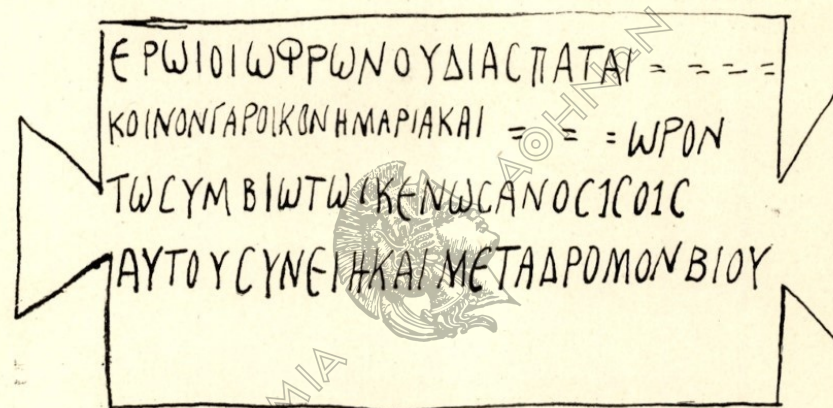 ΕΡѠΙΟΙѠΦΡѠΝΟΥΔΙΑϹΠΑΤΑΙ = = = =
ΚΟΙΝΟΝΓΑΡΟΙΚΟΝΗΜΑΡΙΑΚΑΙ = = = ѠΡΟΝ
ΤѠϹΥΜΒΙѠΤѠΙΚΕΝѠϹΑΝΟϹΙϹΟΙϹ
ΑΥΤΟΥϹΥΝΕΙΗΚΑΙΜΕΤΑΔΡΟΜΟΝΒΙΟΥ
ΑΘΗΝΩΝ